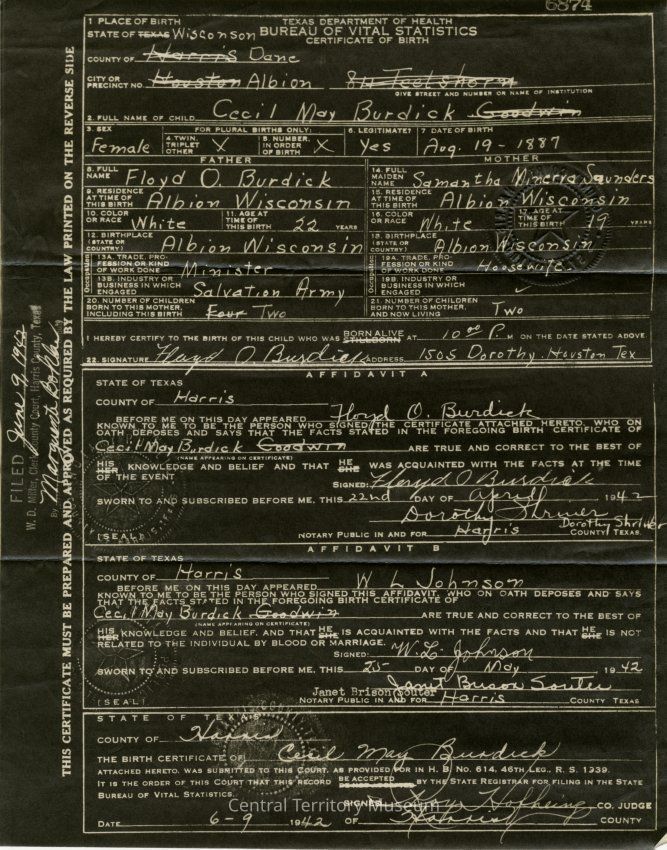 6874
1 PLACE OF BIRTH TEXAS DEPARTMENT OF HEALTH
STATE OF TEXAS Wisconson BUREAU OF VITAL STATISTICS
CERTIFICATE OF BIRTH
COUNTY OF Harris Dane
CITY OR PRECINCT NO. Houston Albion
GIVE STREET AND NUMBER OR NAME OF INSTITUTION
2. FULL NAME OF CHILD Cecil May Burdick Goodwin
3. SEX Female FOR PLURAL BIRTHS ONLY: 4. TWIN, TRIPLET OTHER X 5. NUMBER, IN ORDER OF BIRTH X 6. LEGITIMATE? Yes 7 DATE OF BIRTH Aug. 19-1887
FATHER MOTHER
8. FULL NAME Floyd O. Burdick 14. FULL MAIDEN NAME Samantha Minerva Saunders
9. RESIDENCE AT TIME OF THIS BIRTH Albion Wisconsin 15. RESIDENCE AT TIME OF THIS BIRTH Albion Wisconsin
10. COLOR OR RACE White 11. AGE AT TIME OF THIS BIRTH 22 YEARS 16. COLOR OR RACE White 17. AGE AT TIME OF THIS BIRTH 19 YEARS
12. BIRTHPLACE (STATE OR COUNTRY) Albion Wisconsin 18. BIRTHPLACE (STATE OR COUNTRY) Albion Wisconsin
Occupation 13A. TRADE, PROFESSION OR KIND OF WORK DONE Minister Occupation 19A. TRADE, PROFESSION OR KIND OF WORK DONE Housewife
13B. INDUSTRY OR BUSINESS IN WHICH ENGAGED Salvation Army 19B. INDUSTRY OR BUSINESS IN WHICH ENGAGED
20. NUMBER OF CHILDREN BORN TO THIS MOTHER, INCLUDING THIS BIRTH Four Two 21. NUMBER OF CHILDREN BORN TO THIS MOTHER AND NOW LIVING Two
I HEREBY CERTIFY TO THE BIRTH OF THIS CHILD WHO WAS BORN ALIVE STILLBORN AT 10 00 P. M ON THE DATE STATED ABOVE.
22. SIGNATURE Floyd O Burdick ADDRESS 1505 Dorothy, Houston Tex
AFFIDAVIT A
STATE OF TEXAS
COUNTY OF Harris
BEFORE ME ON THIS DAY APPEARED Floyd O. Burdick
KNOWN TO ME TO BE THE PERSON WHO SIGNED THE CERTIFICATE ATTACHED HERETO, WHO ON
OATH DEPOSES AND SAYS THAT THE FACTS STATED IN THE FOREGOING BIRTH CERTIFICATE OF
Cecil May Burdick Goodwin ARE TRUE AND CORRECT TO THE BEST OF
(NAME APPEARING ON CERTIFICATE)
HIS HER KNOWLEDGE AND BELIEF AND THAT HE SHE WAS ACQUAINTED WITH THE FACTS AT THE TIME
OF THE EVENT
SIGNED: Floyd O Burdick
SWORN TO AND SUBSCRIBED BEFORE ME, THIS 22nd DAY OF April 1942
Dorothy Shriver
Dorothy Shriver
[SEAL] NOTARY PUBLIC IN AND FOR Harris COUNTY TEXAS.
AFFIDAVIT B
STATE OF TEXAS
COUNTY OF Harris
BEFORE ME ON THIS DAY APPEARED W L Johnson
KNOWN TO ME TO BE THE PERSON WHO SIGNED THIS AFFIDAVIT, WHO ON OATH DEPOSES AND SAYS
THAT THE FACTS STATED IN THE FOREGOING BIRTH CERTIFICATE OF
Cecil May Burdick Goodwin ARE TRUE AND CORRECT TO THE BEST OF
(NAME APPEARING ON CERTIFICATE)
HIS HER KNOWLEDGE AND BELIEF, AND THAT HE SHE IS ACQUAINTED WITH THE FACTS AND THAT HE SHE IS NOT
RELATED TO THE INDIVIDUAL BY BLOOD OR MARRIAGE.
SIGNED: W.L. Johnson
SWORN TO AND SUBSCRIBED BEFORE ME, THIS 25 DAY OF May 1942
Janet Brison Souter
Janet Brison Souter
[SEAL] NOTARY PUBLIC IN AND FOR Harris COUNTY TEXAS
STATE OF TEXAS
COUNTY OF Harris
THE BIRTH CERTIFICATE OF Cecil May Burdick
ATTACHED HERETO, WAS SUBMITTED TO THIS COURT, AS PROVIDED FOR IN H. B. NO. 614, 46TH LEG., R. S. 1939.
IT IS THE ORDER OF THIS COURT THAT THIS RECORD BE ACCEPTED BY THE STATE REGISTRAR FOR FILING IN THE STATE
BUREAU OF VITAL STATISTICS.
SIGNED Roy Hofheinz CO. JUDGE
DATE 6-9 1942 OF Harris COUNTY
THIS CERTIFICATE MUST BE PREPARED AND APPROVED AS REQUIRED BY THE LAW PRINTED ON THE REVERSE SIDE
FILED June 9, 1942
W. D. Miller, Clerk County Court, Harris County, Texas
By
Central Territory Museum